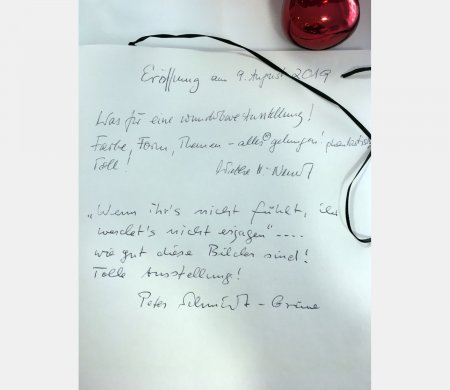 Eröffnung am 9. August 2019
Was für eine wunderbare Ausstellung!
Farbe, Form, Themen – alles gelungen! phantastisch
Toll!
„Wenn ihr's nicht fühlt, ihr
werdet's nicht erjagen“....
wie gut diese Bilder sind!
Tolle Ausstellung!
Peter Schmidt - Grüne